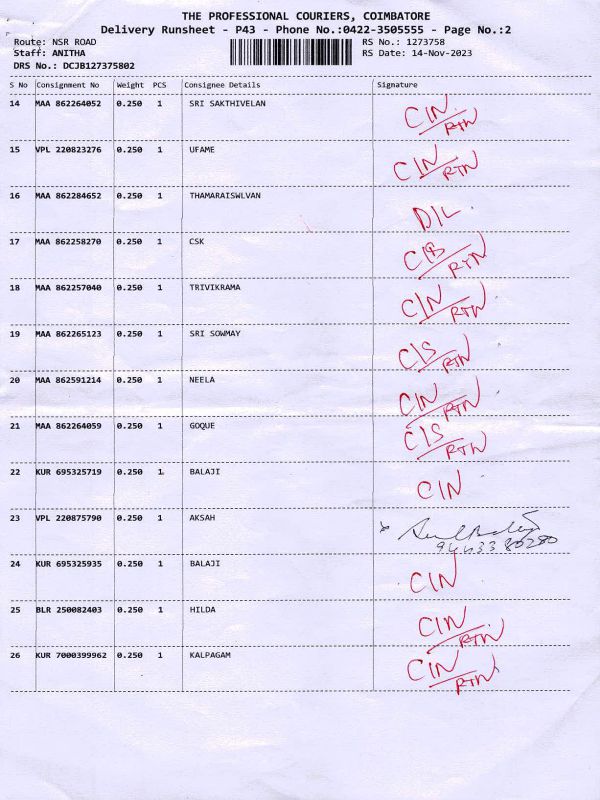 THE PROFESSIONAL COURIERS, COIMBATORE
Delivery Runsheet - P43 - Phone No.:0422-3505555 - Page No.:2
Route: NSR ROAD RS No.: 1273758
Staff: ANITHA RS Date: 14-Nov-2023
DRS No.: DCJB127375802
S No Consignment No Weight PCS Consignee Details Signature
14 MAA 862264052 0.250 1 SRI SAKTHIVELAN CIN/RTN
15 VPL 220823276 0.250 1 UFAME CIN/RTN
16 MAA 862284652 0.250 1 THAMARAISWLVAN D/L
17 MAA 862258270 0.250 1 CSK RTN
18 MAA 862257040 0.250 1 TRIVIKRAMA CIN/RTN
19 MAA 862265123 0.250 1 SRI SOWMAY C/S RTN
20 MAA 862591214 0.250 1 NEELA CIN/RTN
21 MAA 862264059 0.250 1 GOQUE C/S RTN
22 KUR 695325719 0.250 1 BALAJI CIN
23 VPL 220875790 0.250 1 AKSAH
24 KUR 695325935 0.250 1 BALAJI CIN
25 BLR 250082403 0.250 1 HILDA CIN/RTN
26 KUR 7000399962 0.250 1 KALPAGAM CIN/RTN